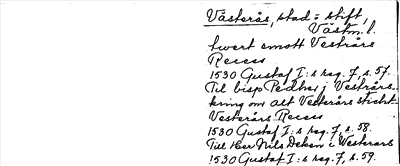 Västerås, stad = stift,
Västm. l.
twert emott Vestrårs
Recess
1530 Gustaf I:s reg. 7, s. 57.
Til bisp Pedher j Vestrårs..
kring om alt Vesterårs sticht
Vesterårs Recess
1530 Gustaf I:s reg. 7, s. 58.
Till Her Nils Deken i Westerars
1530 Gustaf I:s reg. 7, s. 59.